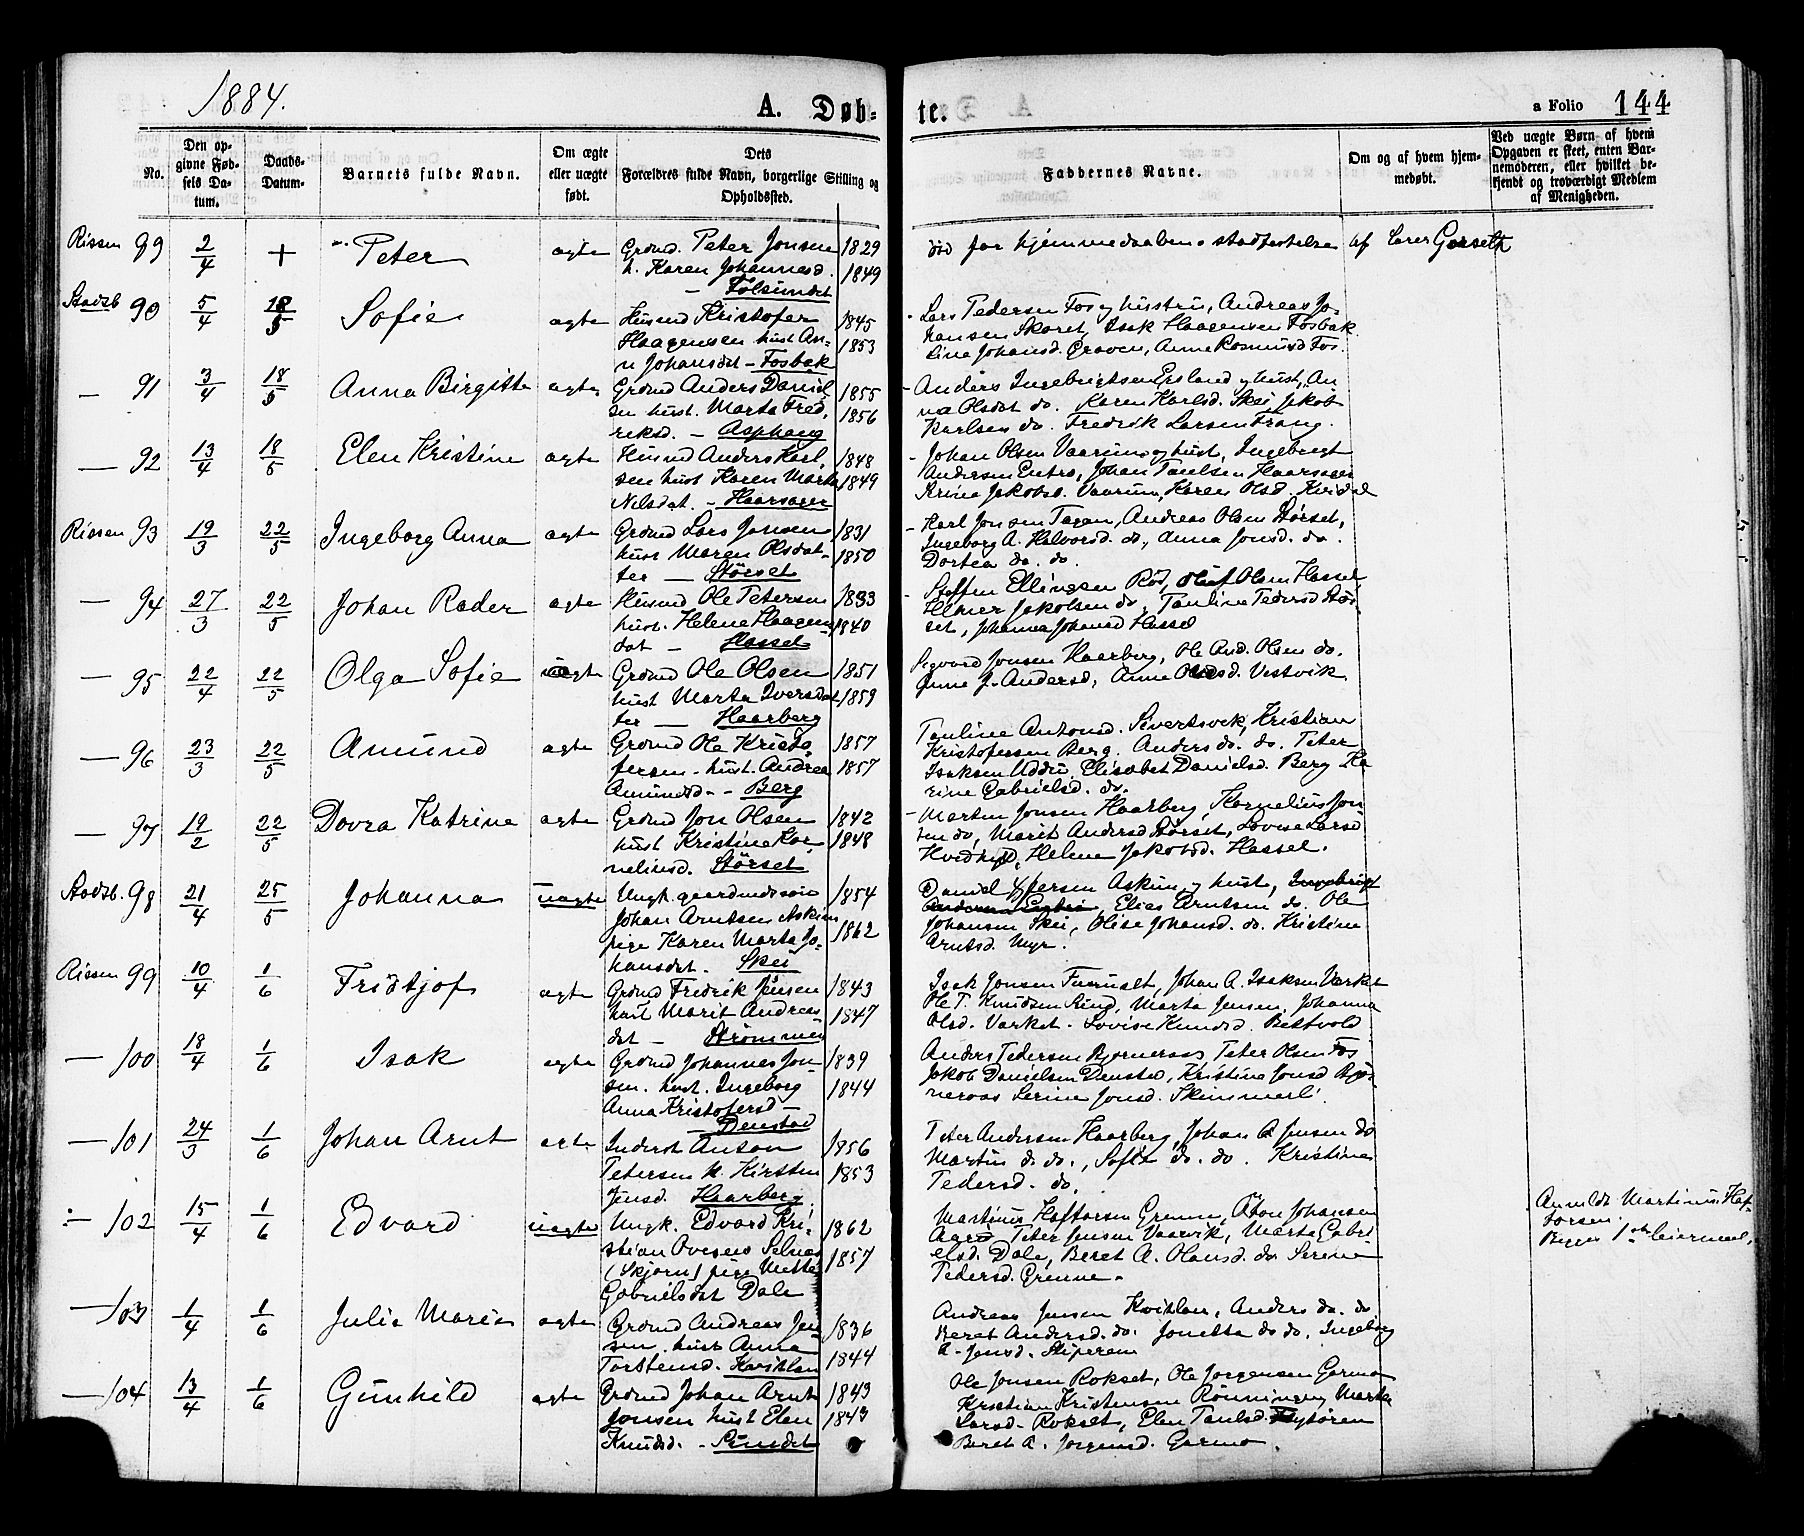 1884.
A. Døb-
te.
a Folio 144
No.
Den op-
givne Fød-
sels Da-
tum.
Daabs-
Datum.
Barnets fulde Navn.
Om ægte
eller uægte
født.
Dets
Forældres fulde Navn, borgerlige Stilling og
Opholdssted.
Faddernes Navne.
Om og af hvem hjem-
medøbt.
Ved uægte Børn af hvem
Opgaven er skeet, enten Bar-
nemoderen, eller hvilket be-
kjendt og troværdigt Medlem
af Menigheden.
Rissen 99 2/4 + Peter ægte Grdmd. Peter Jonsen 1829
h. Karen Johannesd. 1849
død før hjemmedaabens stadfæstelse af Lærer Gjørseth
Stadsb. 90 5/4 18/5 Sofie ægte Husmd Kristofer 1845
Haagensen hust An- 1853
n Johansdat - Fosbak
Lars Pedersen Fos og hustru, Andreas Jo-
hansen Skoret, Isak Haagensen Fosbak
Lina Johansd. Graven, Anne Rasmusd Fos.
— 91 3/4 18/5 Anna Birgitte ægte Grdmd Anders Daniel 1855
sen hust. Marta Fred, 1856
riksd. - Asphaug
Anders Ingebrigtsen Ersland og hust, An
na Olsdat do. Karen Karlsd. Skei, Jakob
Karlsen do. Fredrik Larsen Frang.
— 92 13/4 18/5 Elen Kristine ægte Husmd Anders Karl, 1848
sen hust Karen Marta 1849
Nilsdat. - Haarsager
Johan Olsen Vaarum og hust, Ingebrigt
Andersen Entro, Johan Paulsen Haarsager
Serina Jakobsd. Vaarum, Karen Olsd. Kvidal
Rissen 93 19/3 22/5 Ingeborg Anna ægte Grdmd Lars Jonsen 1831
hust Maren Olsdat- 1850
ter — Störset
Karl Jonsen Tagan, Andreas Olsen Störset,
Ingeborg A. Halvorsd. do, Anna Jonsd. do.
Dortea do. do.
— 94 27/3 22/5 Johan Rader ægte Husmd Ole Petersen 1833
hust. Helene Haagens- 1840
dat - Hassel
Steffen Ellingsen Rød, Oluf Olsen Hassel
Elmer Jakobsen do, Pauline Pedersd Stør-
set, Johanna Johansd Hassel
— 95 22/4 22/5 Olga Sofie ægte Grdmd Ole Olsen 1851
hust Marta Iversdat 1859
ter — Haarberg
Sigvard Jonsen Haarberg, Ole And. Olsen do.
Anne J. Andersd, Anne Olsd. Vestvik
— 96 23/3 22/5 Amund ægte Grdmd Ole Kristo, 1857
fersen. hust. Andrea 1857
Amundsd - Berg
Pauline Antonsd. Sivertsvik, Kristian
Kristofersen Berg. Anders do. do. Peter
Isaksen Uddu, Elisabet Danielsd. Berg Ka
rine Gabrielsd. do.
— 97 19/2 22/5 Dovra Katrine ægte Grdmd Jon Olsen 1842
hust Kristine Kor 1848
neliusd. Störset
Morten Jonsen Haarberg, Kornelius Jon
sen do, Marit Andersd Störset, Lovise Larsd
Helene Jakobsd. Hassel.
Stadsb. 98 21/4 25/5 Johanna uægte Ungk. gaardmdssøn 1854
Johan Arntsen Askim
pige Karen Marta Jo- 1862
hansdat. Skei
Daniel Askim og hust, Ingebrigt
Andersen Entro, Elias Arntsen do. Ole
Johansen Skei, Olise Johansd. do. Kristine
Arntsd. Myr.
Rissen 99 10/4 1/6 Fridtjof ægte Grdmd Fredrik Jensen 1843
hust Marit Andreas- 1847
dat - Strømmen
Isak Jonsen Johan A. Isaksen Værket
Ole T. Knudsen Ring, Marta Jensen, Johanna
Olsd. Værket. Lovise Knudsd. Reitvold
— 100 18/4 1/6 Isak ægte Grdmd Johannes Jon- 1839
sen. hust. Ingeborg 1844
Anna Kristofersd -
Denstad
Anders Pedersen Bjørneraas, Peter Olsen Fos
Jakob Danielsen Denstad, Kristine Jonsd Bjør-
neraas Serine Jonsd.
— 101 24/3 1/6 Johan Arnt ægte Inderst Anton 1856
Petersen h. Kirsten 1853
Jensd. Haarberg
Peter Andersen Haarberg, Johan A Jensen do
Martin do do., Sofie do. do. Kristine
Pedersd. do.
— 102 15/4 1/6 Edvard uægte Ungk. Edvard Kri 1862
stian Ovesen Selnes
(Skjørn) pige Mette 1857
Gabrielsdat Dale
Martinus Haftorsen Grønne, Johansen
Peter Jensen Vaarvik, Marta Gabri
elsd. Dale, Beret A. Olausd. do Serine
Pedersd. Grønne.
Anmeldt Martinus Haf-
torsen
Begges 1ste leiermaal,
— 103 1/4 1/6 Julie Marie ægte Grdmd Andreas Jen 1836
sen. hust Anna 1844
Torstensd. Kvithlan
Andreas Jensen Kvithlan, Anders do. do.
Beret Andersd. do. Jonetta do do, Ingeborg
A. Jensd.
— 104 13/4 1/6 Gunhild ægte Grdmd Johan Arnt 1843
Jonsen hust Elen 1843
Knudsd. - Sundet
Ole Jonsen Rokset, Ole Jørgensen Germo
Kristian Kristensen Rønningen, Marta
Larsd. Rokset, Elen Paulsd.
Beret A. Jørgensd. Germo.